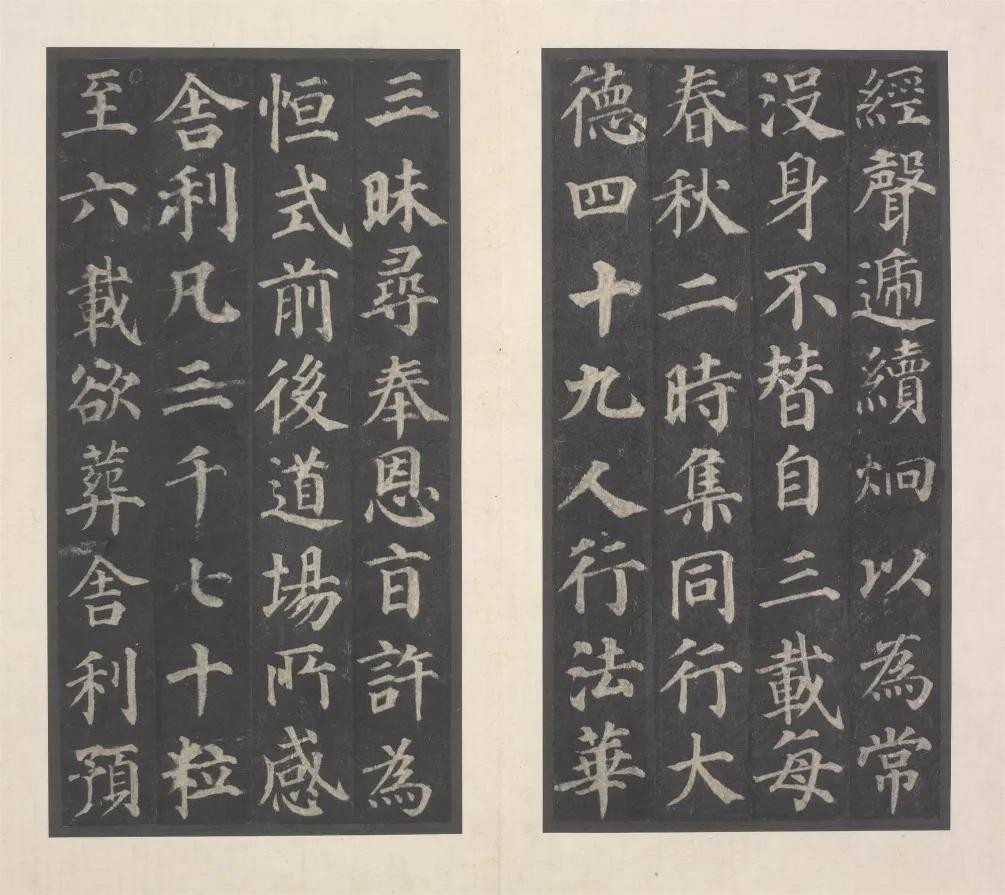 經聲遞續炯以為常
没身不替自三載每
春秋二時集同行大
德四十九人行法華
三昧尋奉恩旨許為
恒式前後道場所感
舍利凡三千七十粒
至六載欲葬舍利預